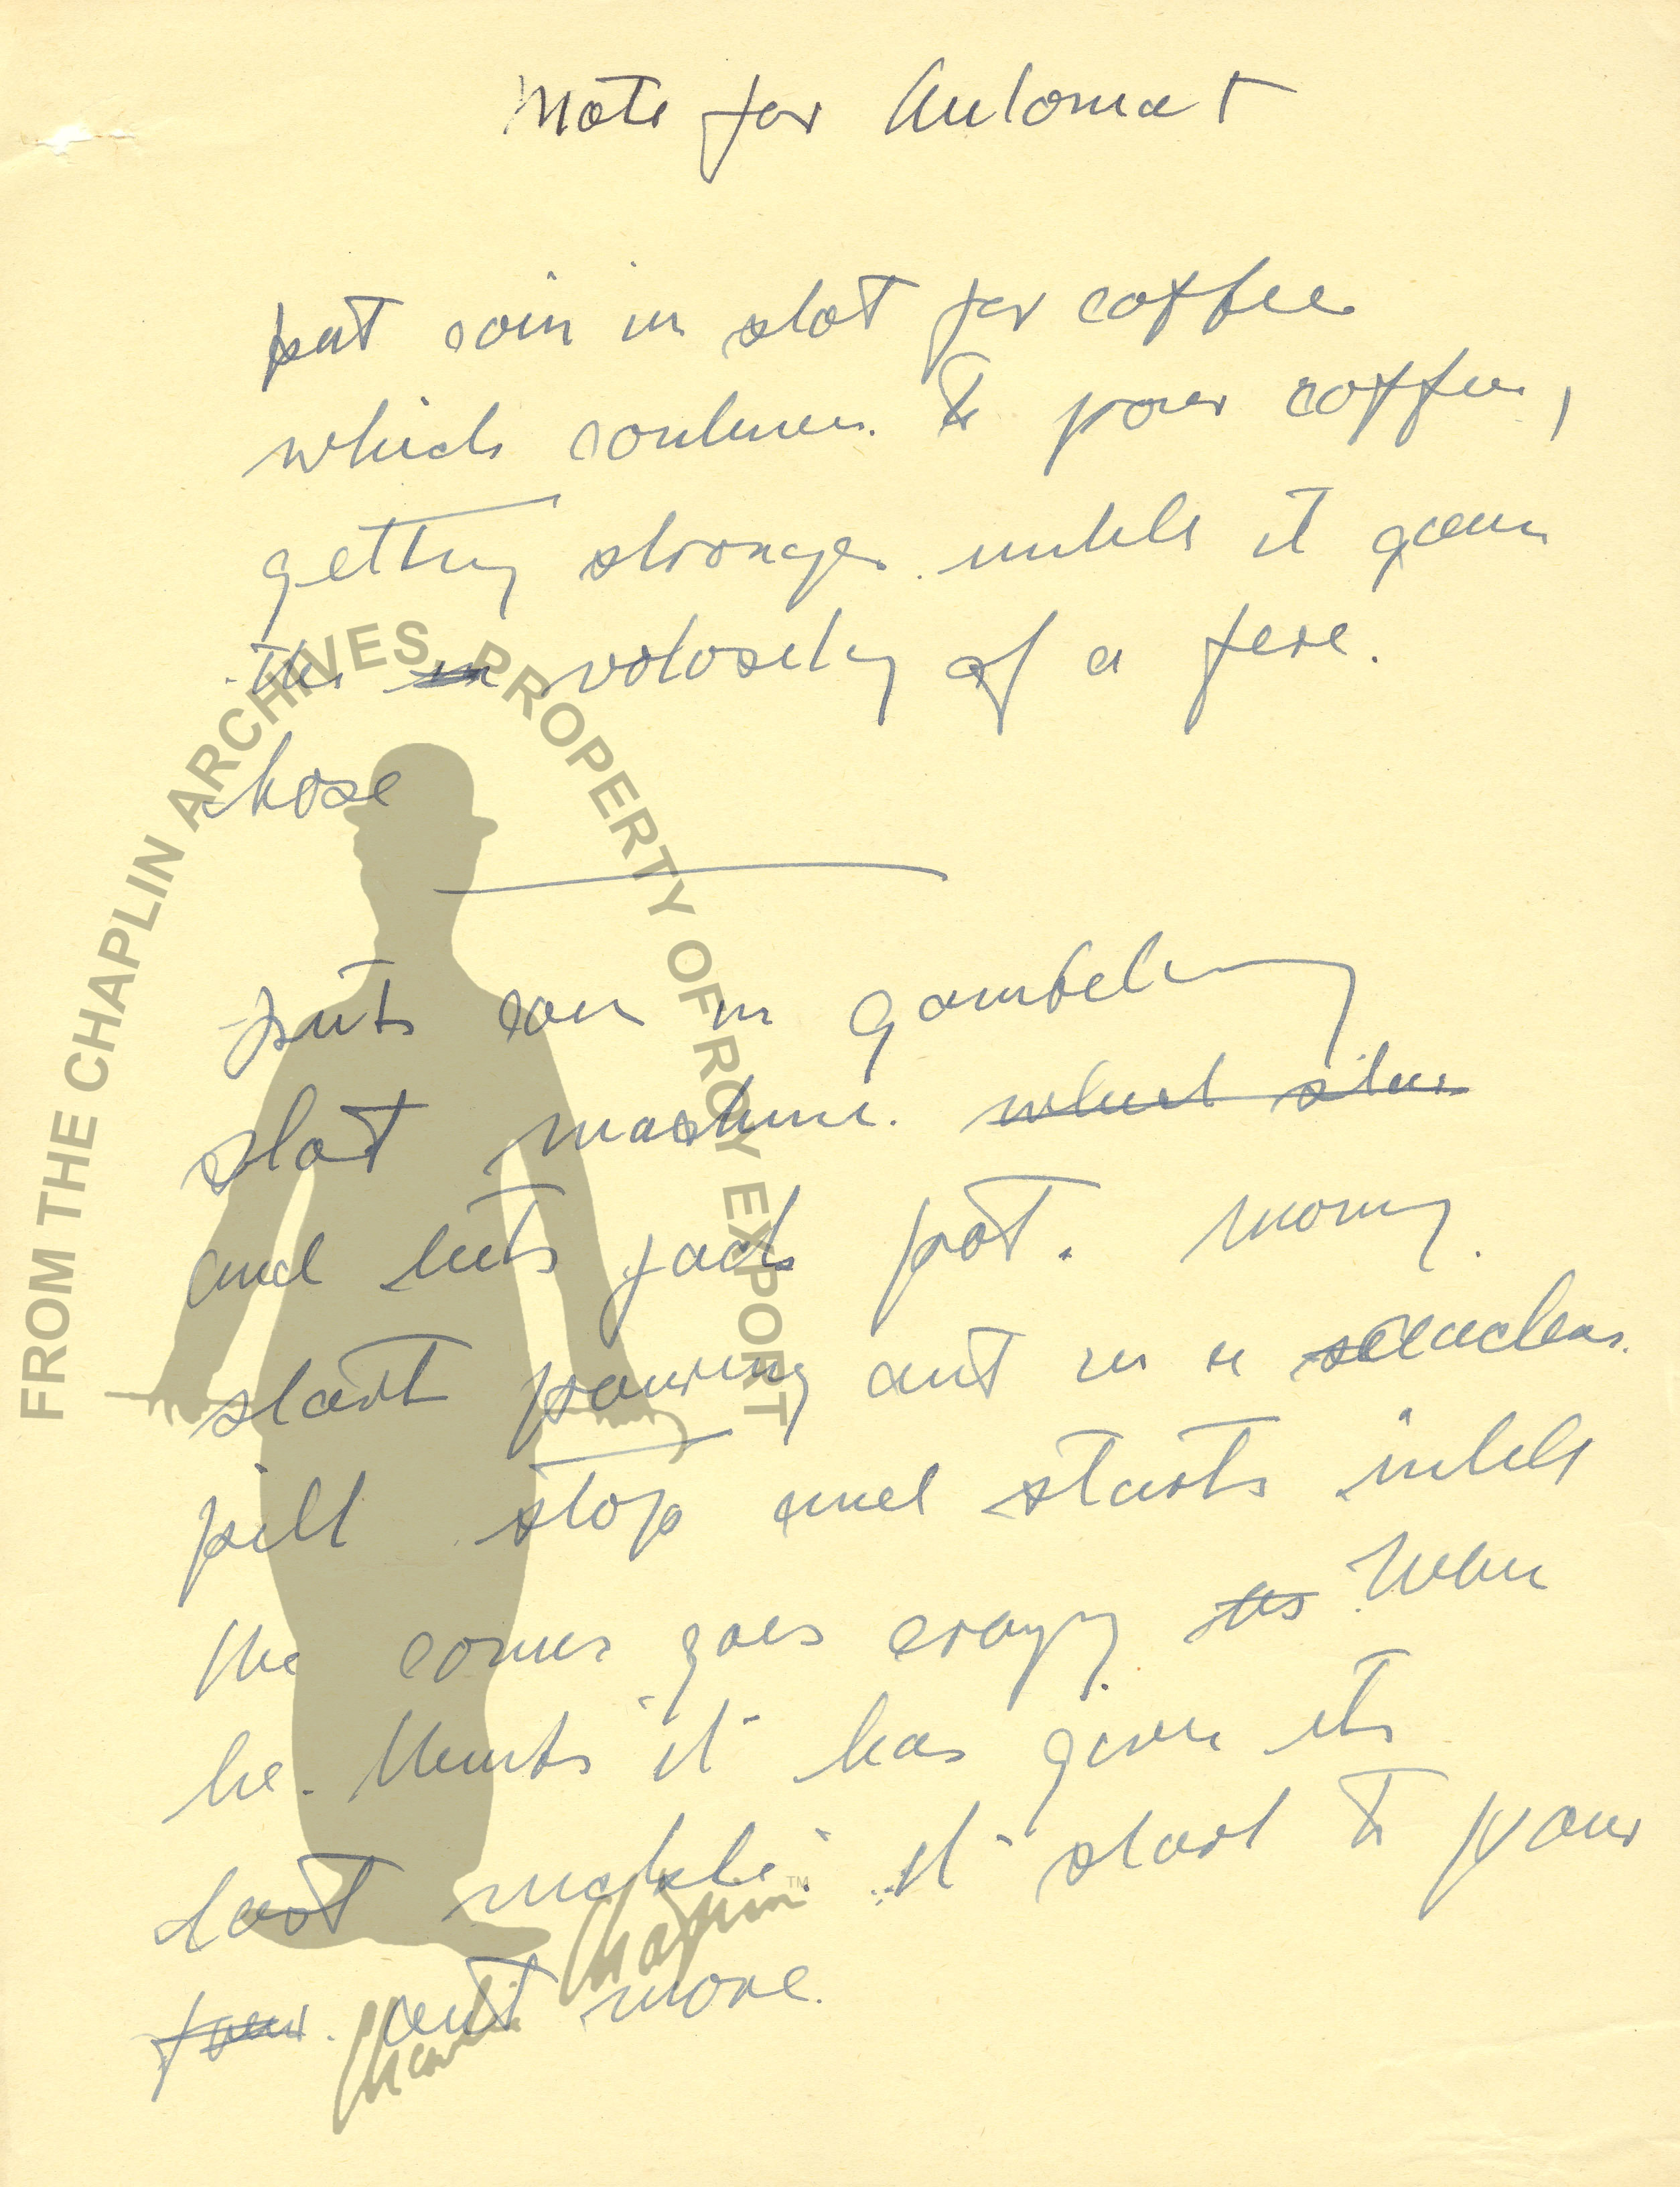 Note for Automat
put coin in slot for coffee
which continues to pour coffee,
getting stronger until it gains
the in volosity of a fire
hose
puts coin in gambeling
slot machine. which slow
and hits jack pot. money
start pouring out in a
pill stop and starts intill
the comes goes crazy. When
he thinks it has given its
last nickle it start to pour
four out more.
FROM THE CHAPLIN ARCHIVES, PROPERTY OF ROY EXPORT
Charlie Chaplin™